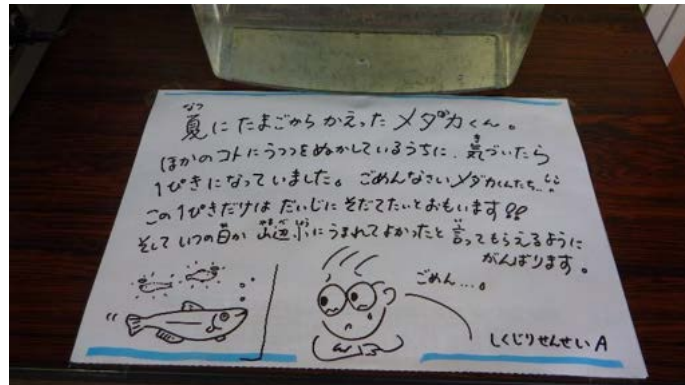 夏にたまごからかえったメダカくん。
ほかのコトにうつつをぬかしているうちに、気づいたら
1ぴきになっていました。ごめんなさいメダカくんたち…。
この1ぴきだけは だいじにそだてたいとおもいます!!
そして いつの日か 山辺小にうまれてよかったと 言ってもらえるように
がんばります。
ごめん…。
しくじりせんせいA